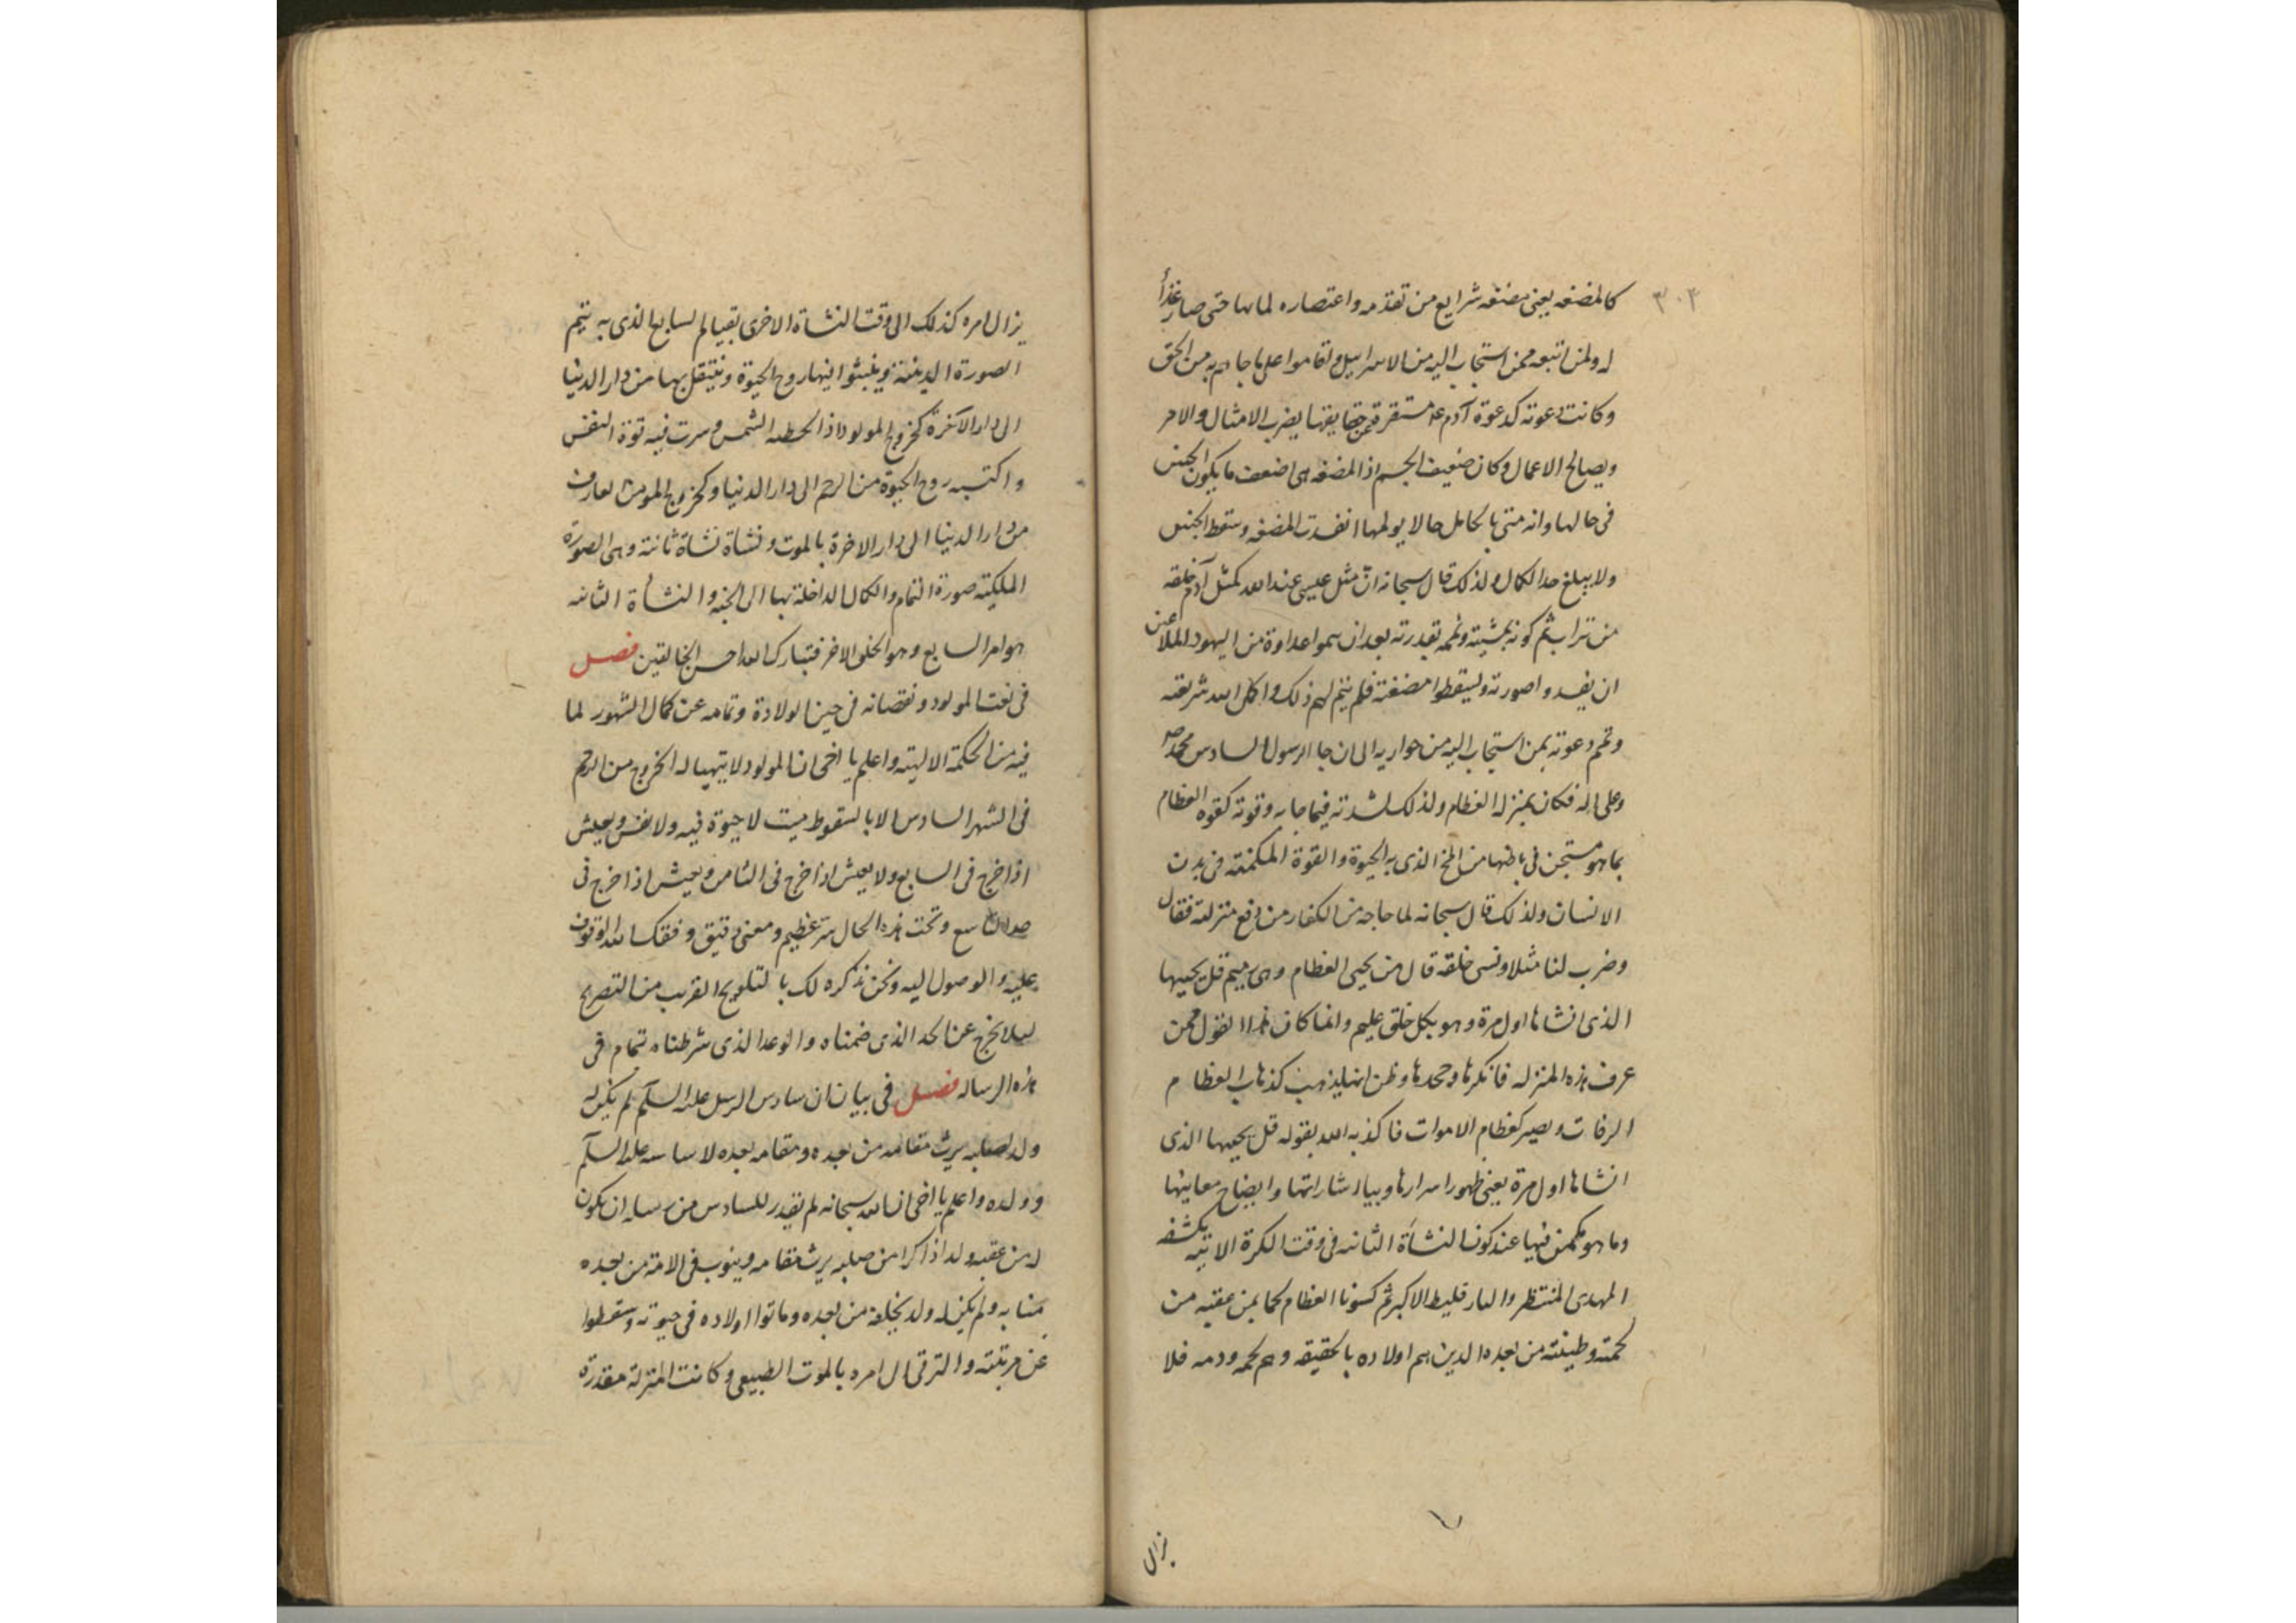 ٣٠٣
كالمضغه يعنى مضغه شرايع من تقدمه واعتصاره لمائها حتى صار غذأ
له ولمن اتبعه ممن استجاب اليه من الاسراييل واقاموا على ما جاهم به من الحق
وكانت دعوته كدعوة آدم ع م مستقرة حقايقها بضرب الامثال والامر
وبصالح الاعمال وكان ضعيف الجسم اذ المضغه هى اضعف ما يكون الجنين
فى حالها وانه متى الحامل حالا يولمها انفسدت المضغه وسقط الجنين
ولا يبلغ حد الكمال ولذلك قال سبحانه ان مثل عيسى عند الله كمثل آدم خلقه
من تراب ثم كونه بمشيته وتممه بقدرته بعد ان هموا اعداوة من اليهود الملاعين
ان يفسدوا صورته وليسقطوا مضغته فلم يتم لهم ذلك واكمل الله شريعته
وتمم دعوته بمن استجاب اليه من حواريه الى ان جا الرسول السادس محمد ص
وعلى اله فكان بمنزله العظام ولذلك لشدته فيما جا به وقوته كقوه العظام
بما هو مستجن فى باطنها من المخ الذى به الحيوة والقوة المكمنته فى بدن
الانسان ولذلك قال سبحانه لما حاجه من الكفار من دفع منزلته فقال
وضرب لنا مثلا ونسى خلقه قال من يحيى العظام وهى رميم قل يحييها
الذى انشاها اول مرة وهو بكل خلق عليم وانما كان هذا القول ممن
عرف هذه المنزله فانكرها وجحدها وظن انها يذهب كذهاب العظام
الرفات ويصير كعظام الاموات فاكذبه الله بقوله قل يحييها الذى
انشاها اول مرة يعنى ظهور اسرارها وبيان اشاراتها وايضاح معاينها
وما هو مكمن فيها عند كون النشأة الثانيه فى وقت الكرة الاتيه يكشفه
المهدى المنتظر والبارقليط الاكبر ثم كسونا العظام لحما بمن عقبه من
لحمته وطينته من بعده الذين هم اولاده بالحقيقه وهم لحمه ودمه فلا
يزال
يزال امره كذلك الى وقت النشاة الاخرى بقيام السابع الذى به يتم
الصورة الدينية وينبثوا فيها روح الحيوة وينتقل بها من دار الدنيا
الى دار الآخرة كخروج المولود اذا الشمس وسرت فيه قوة النفس
واكتسبه روح الحيوة من الرحم الى دار الدنيا وكخروج المومن العارف
من دار الدنيا الى دار الاخرة بالموت ونشاة نشاة ثانية وهى الصورة
الملكيته صورة التمام والكمال الداخلة بها الى الجنه والنشأة الثانيه
هو امر السابع وهو الخلق الاخر فتبارك الله احسن الخالقين فصل
فى نعت المولود ونقصانه فى حين الولادة وتمامه عن كمال الشهور لما
فيه من الحكمة الالهيته واعلم يا اخى ان المولود لا يتهيا له الخروج من الرحم
فى الشهر السادس الا بالسقوط ميت لا حيوة فيه ولا نفس ويعيش
اذا خرج فى السابع ولا يعيش اذا خرج فى الثامن ويعيش اذا خرج فى
حد التاسع وتحت هذه الحال سر عظيم ومعنى دقيق وفقك الله للوقوف
عليه والوصول اليه ونحن نذكره لك بالتلويح القريب من التصريح
ليلا نخرج عن الحد الذى ضمناه والوعد الذى شرطناه تمام فى
هذه الرساله فصل فى بيان ان سادس الرسل عليه السلم لم يكن له
ولد لصلبه يرث مقامه من بعده ومقامه بعده لاساسه عليه السلم
وولده واعلم يا اخى ان الله سبحانه لم يقدر للسادس من رسله ان يكون
له من عقبه ولد اذاكرا من صلبه يرث مقامه وينوب فى الامة من بعده
منابه ولم يكن له ولد يخلفه من بعده وماتوا اولاده فى حيوته وسقطوا
عن مرتبته والترقى الى امره بالموت الطبيعى وكانت المنزلة مقدرة